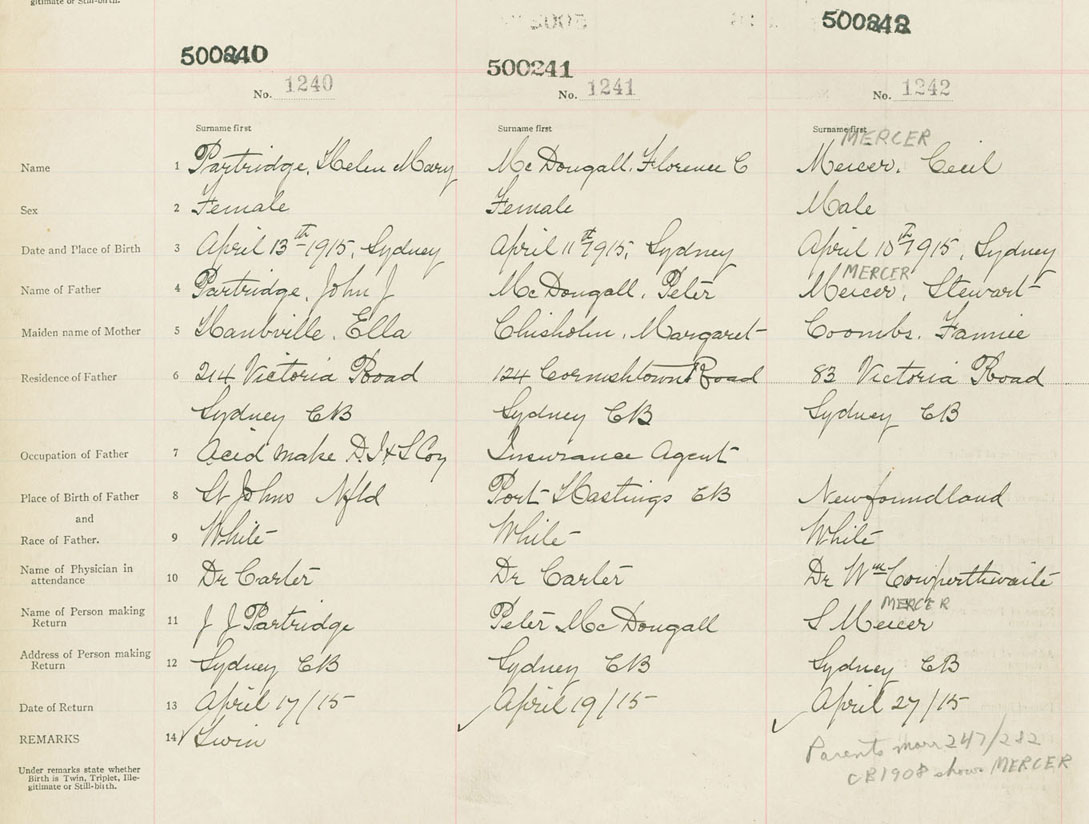 gitimate or Still-birth.
500240
500241
500242
No. 1240
No. 1241
No. 1242
Surname first
Surname first
Surname first
MERCER
Name 1 Partridge, Helen Mary
McDougall, Florence C
Mercer, Cecil
Sex 2 Female
Female
Male
Date and Place of Birth 3 April 13th 1915, Sydney
April 11th 1915, Sydney
April 10th 1915, Sydney
MERCER
Name of Father 4 Partridge, John J
McDougall, Peter
Mercer, Stewart
Maiden name of Mother 5 Ella
Chisholm, Margaret
Coombs, Fannie
Residence of Father 6 214 Victoria Road
124 Road
83 Victoria Road
Sydney CB
Sydney CB
Sydney CB
Occupation of Father 7 Acid make D.I & S Coy
Insurance Agent
Place of Birth of Father 8 St Johns Nfld
Port Hastings CB
Newfoundland
and
Race of Father. 9 White
White
White
Name of Physician in
attendance 10 Dr Carter
Dr Carter
Dr Wm Cowperthwaite
MERCER
Name of Person making
Return 11 J J Partridge
Peter McDougall
S Mercer
Address of Person making
Return 12 Sydney CB
Sydney CB
Sydney CB
Date of Return 13 April 17/15
April 19/15
April 27/15
REMARKS 14 Twin
Parents marr 247/232
CB 1908 shows MERCER
Under remarks state whether
Birth is Twin, Triplet, Ille-
gitimate or Still-birth.